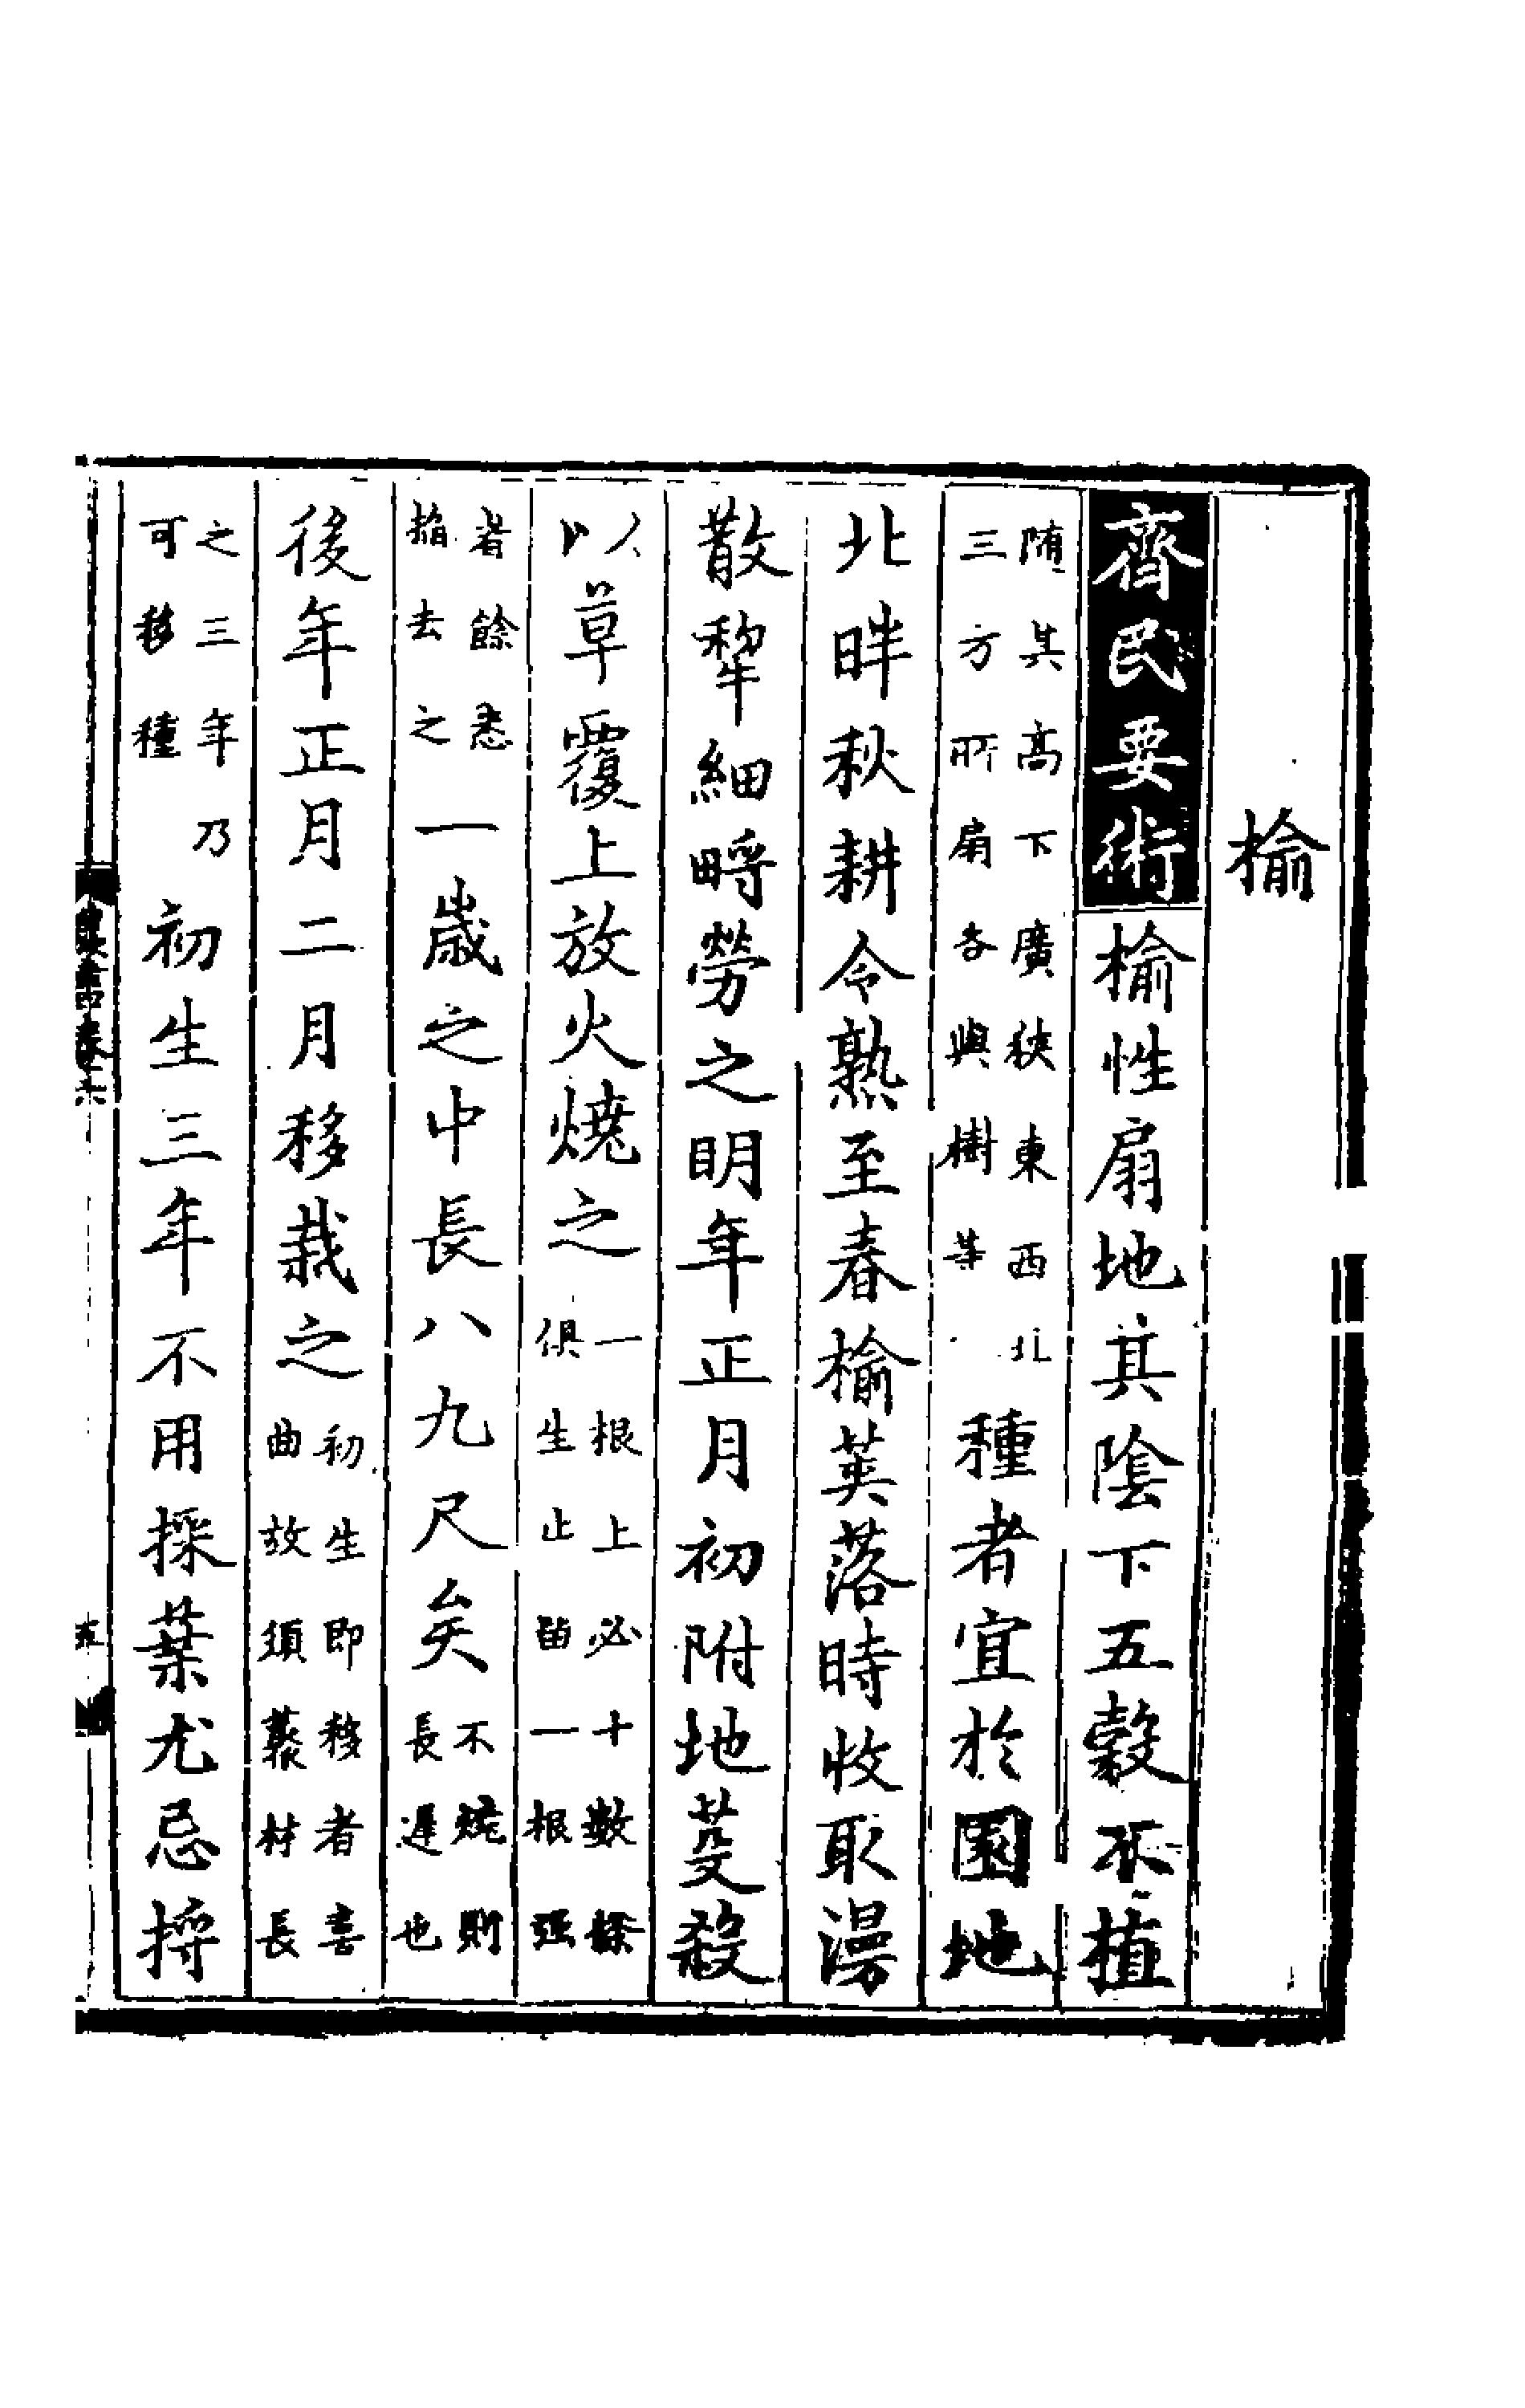 榆
齊民要術榆性扇地其陰下五穀不植
随其高下廣狹東西北
三方所扇各與樹等
種者宜於園地
北畔秋耕令熟至春榆莢落時收取漫
散犂細㽟勞之明年正月初附地芟殺
以草覆上放火燒之
一根上必十數條
俱生止留一根强
者餘悉
掐去之
一歲之中長八九尺矣
不燒則
長遲也
後年正月二月移栽之
初生即移者喜
曲故須藂材長
之三年乃
可移種
初生三年不用採葉尤忌捋
農書卷六